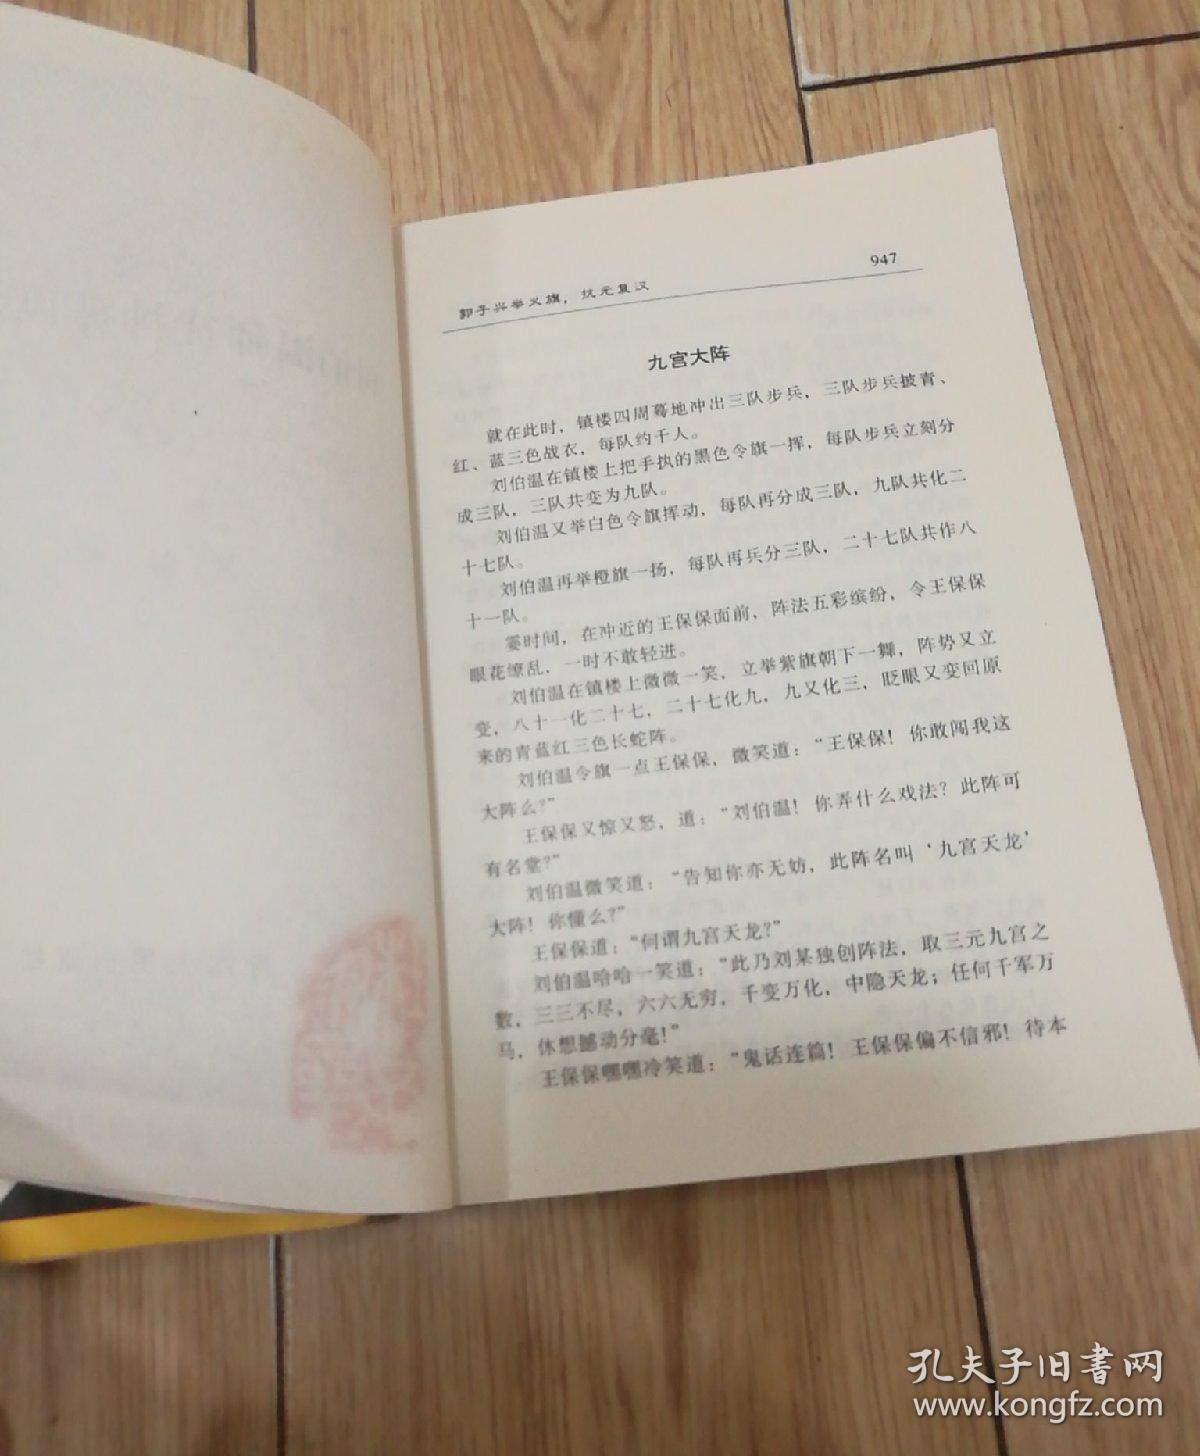 947
郭子兴举义旗，抗元复汉
九宫大阵
就在此时，镇楼四周蓦地冲出三队步兵，三队步兵披青、
红、蓝三色战衣，每队约千人。
刘伯温在镇楼上把手执的黑色令旗一挥，每队步兵立刻分
成三队，三队共变为九队。
刘伯温又举白色令旗挥动，每队再分成三队，九队共化二
十七队。
刘伯温再举橙旗一扬，每队再兵分三队，二十七队共作八
十一队。
霎时间，在冲近的王保保面前，阵法五彩缤纷，令王保保
眼花缭乱，一时不敢轻进。
刘伯温在镇楼上微微一笑，立举紫旗朝下一舞，阵势又立
变，八十一化二十七，二十七化九，九又化三，眨眼又变回原
来的青蓝红三色长蛇阵。
刘伯温令旗一点王保保，微笑道：“王保保！你敢闯我这
大阵么？”
王保保又惊又怒，道：“刘伯温！你弄什么戏法？此阵可
有名堂？”
刘伯温微笑道：“告知你亦无妨，此阵名叫‘九宫天龙’
大阵！你懂么？”
王保保道：“何谓九宫天龙？”
刘伯温哈哈一笑道：“此乃刘某独创阵法，取三元九宫之
数，三三不尽，六六无穷，千变万化，中隐天龙；任何千军万
马，休想撼动分毫！”
王保保嘿嘿冷笑道：“鬼话连篇！王保保偏不信邪！待本
孔夫子旧书网
www.kongfz.com